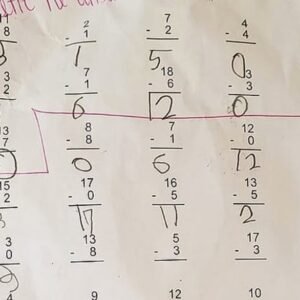 2 7 4
8 - 1 - 2 - 4
1 5 0
3 7 18 3
2 - 1 - 6 - 3
6 2 0
13 8 7 12
7 - 8 - 1 - 0
0 6 12
15 17 16 13
2 - 0 - 5 - 5
17 11 2
3 13 5 17
0 - 8 - 3 - 3
4 9 12 10